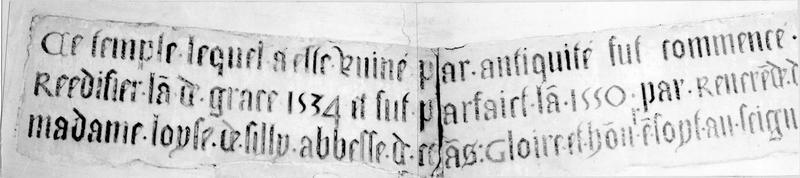 Ce temple lequel a este Ruiné par antiquité fut commence ·
Reedifier lã d̃ grace 1534 et fut parfaict lã · 1550 · par · Reuerẽde · d
madame · loyse · de silly · abbesse · d · cẽãs : Gloire et hõñ ẽ soyt · au · seign